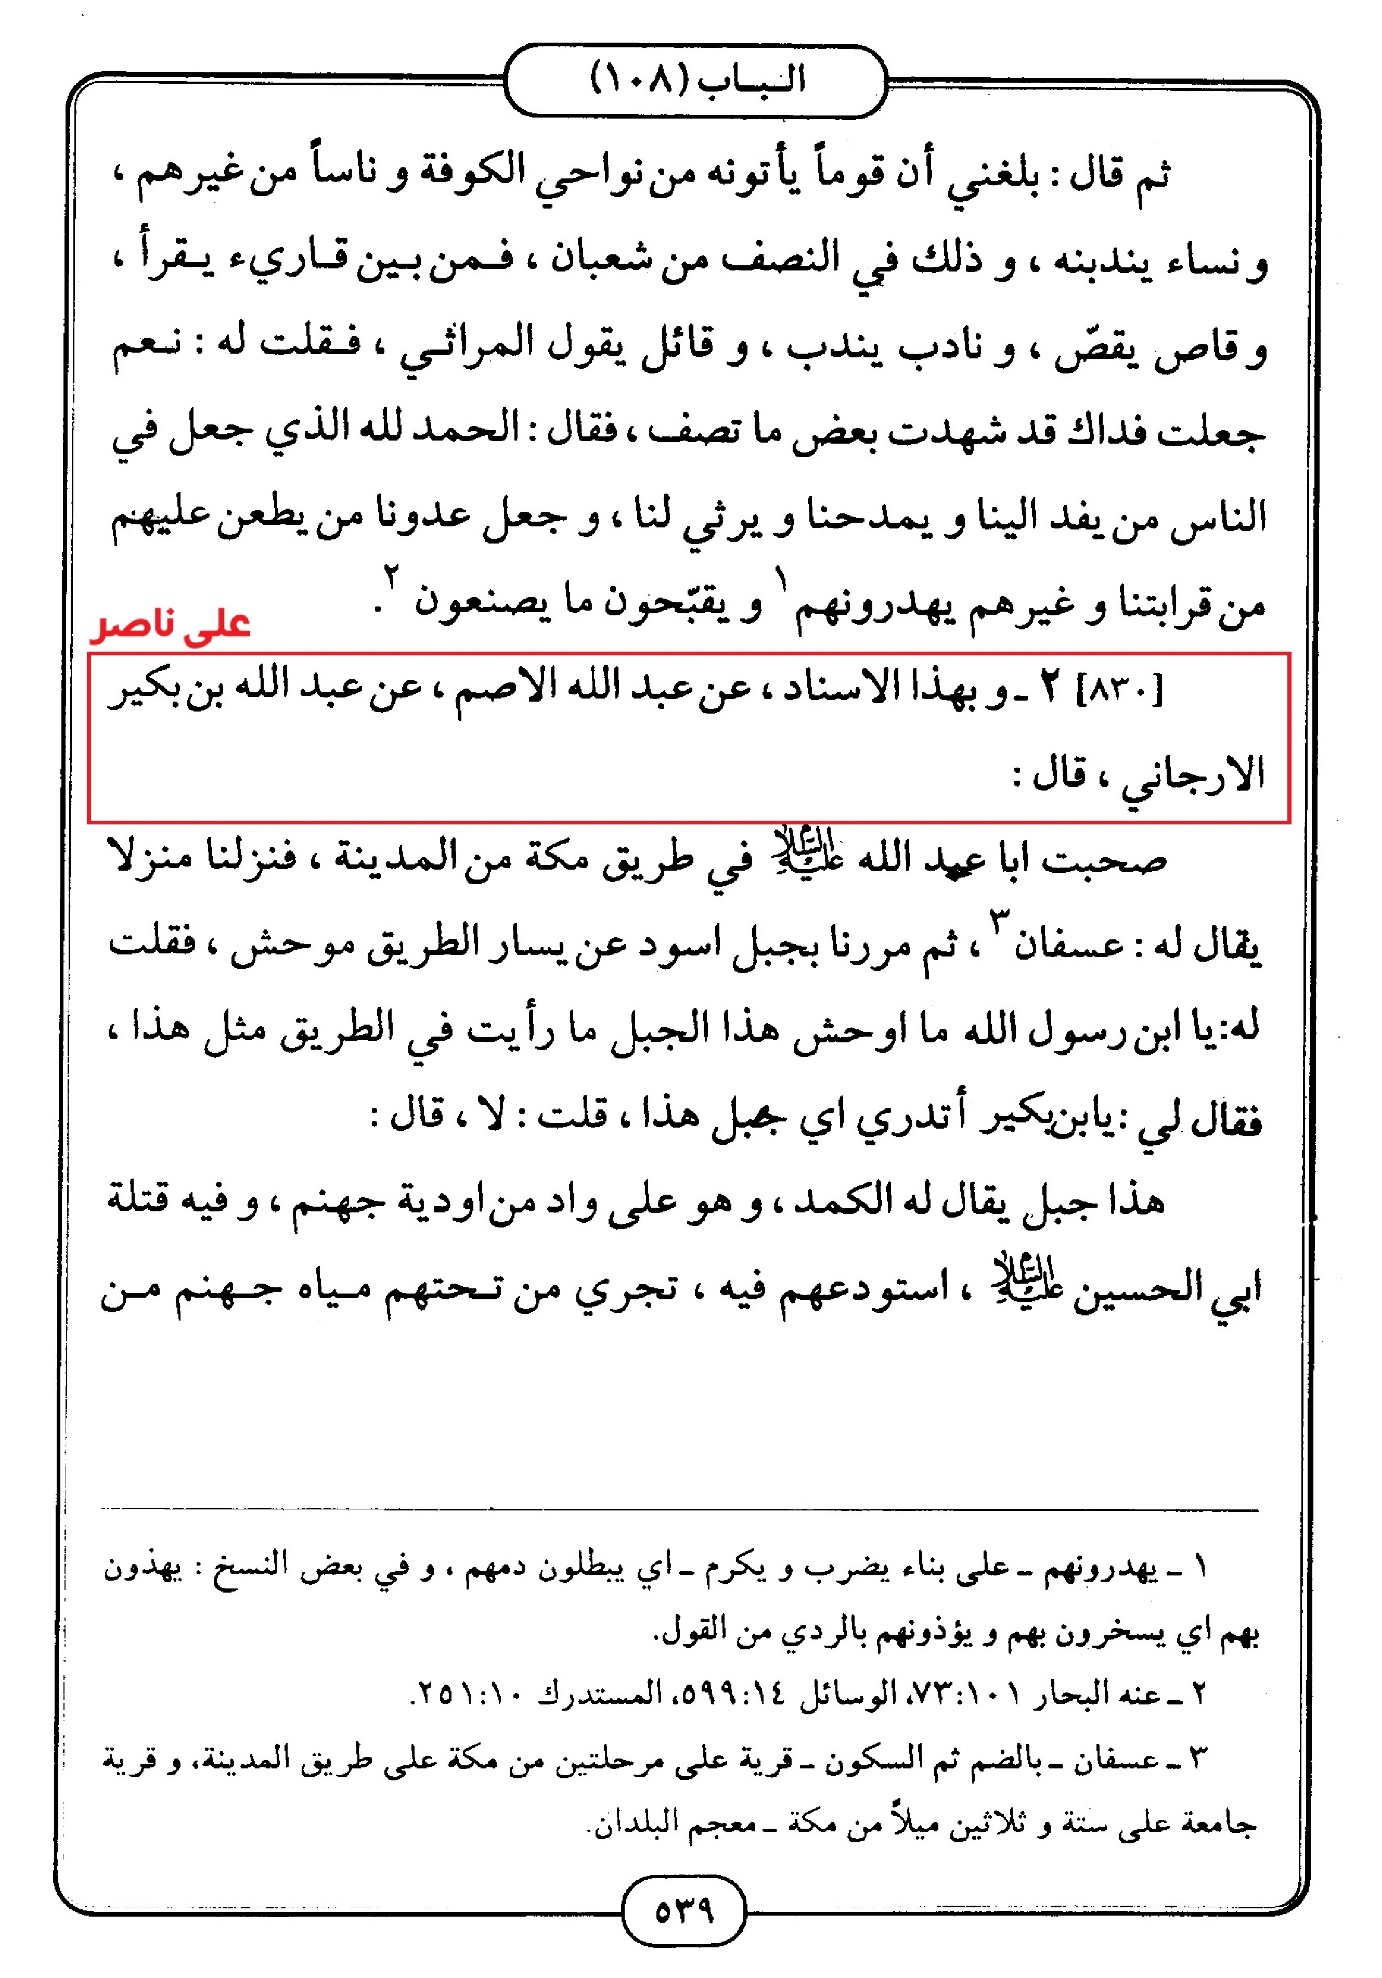 الباب (١٠٨)
ثم قال : بلغني أن قوماً يأتونه من نواحي الكوفة و ناساً من غيرهم ،
و نساء يندبنه ، و ذلك في النصف من شعبان ، فمن بين قاريء يقرأ ،
و قاص يقصّ ، و نادب يندب ، و قائل يقول المراثي ، فقلت له : نعم
جعلت فداك قد شهدت بعض ما تصف ، فقال : الحمد لله الذي جعل في
الناس من يفد الينا و يمدحنا و يرثي لنا ، و جعل عدونا من يطعن عليهم
من قرابتنا و غيرهم يهدرونهم ١ و يقبّحون ما يصنعون ٢.
على ناصر
[٨٣٠] ٢ ـ و بهذا الاسناد ، عن عبد الله الاصم ، عن عبد الله بن بكير
الارجاني ، قال :
صحبت ابا عبد الله عليه السلام في طريق مكة من المدينة ، فنزلنا منزلا
يقال له : عسفان ٣ ، ثم مررنا بجبل اسود عن يسار الطريق موحش ، فقلت
له:يا ابن رسول الله ما اوحش هذا الجبل ما رأيت في الطريق مثل هذا ،
فقال لي : يابن بكير أتدري اي جبل هذا ، قلت : لا ، قال :
هذا جبل يقال له الكمد ، و هو على واد من اودية جهنم ، و فيه قتلة
ابي الحسين عليه السلام ، استودعهم فيه ، تجري من تحتهم مياه جهنم من
١ ـ يهدرونهم ـ على بناء يضرب و يكرم ـ اي يبطلون دمهم ، و في بعض النسخ : يهذون
بهم اي يسخرون بهم و يؤذونهم بالردي من القول.
٢ ـ عنه البحار ١٠١:٧٣، الوسائل ١٤:٥٩٩، المستدرك ١٠:٢٥١.
٣ ـ عسفان ـ بالضم ثم السكون ـ قرية على مرحلتين من مكة على طريق المدينة، و قرية
جامعة على ستة و ثلاثين ميلاً من مكة ـ معجم البلدان.
٥٣٩